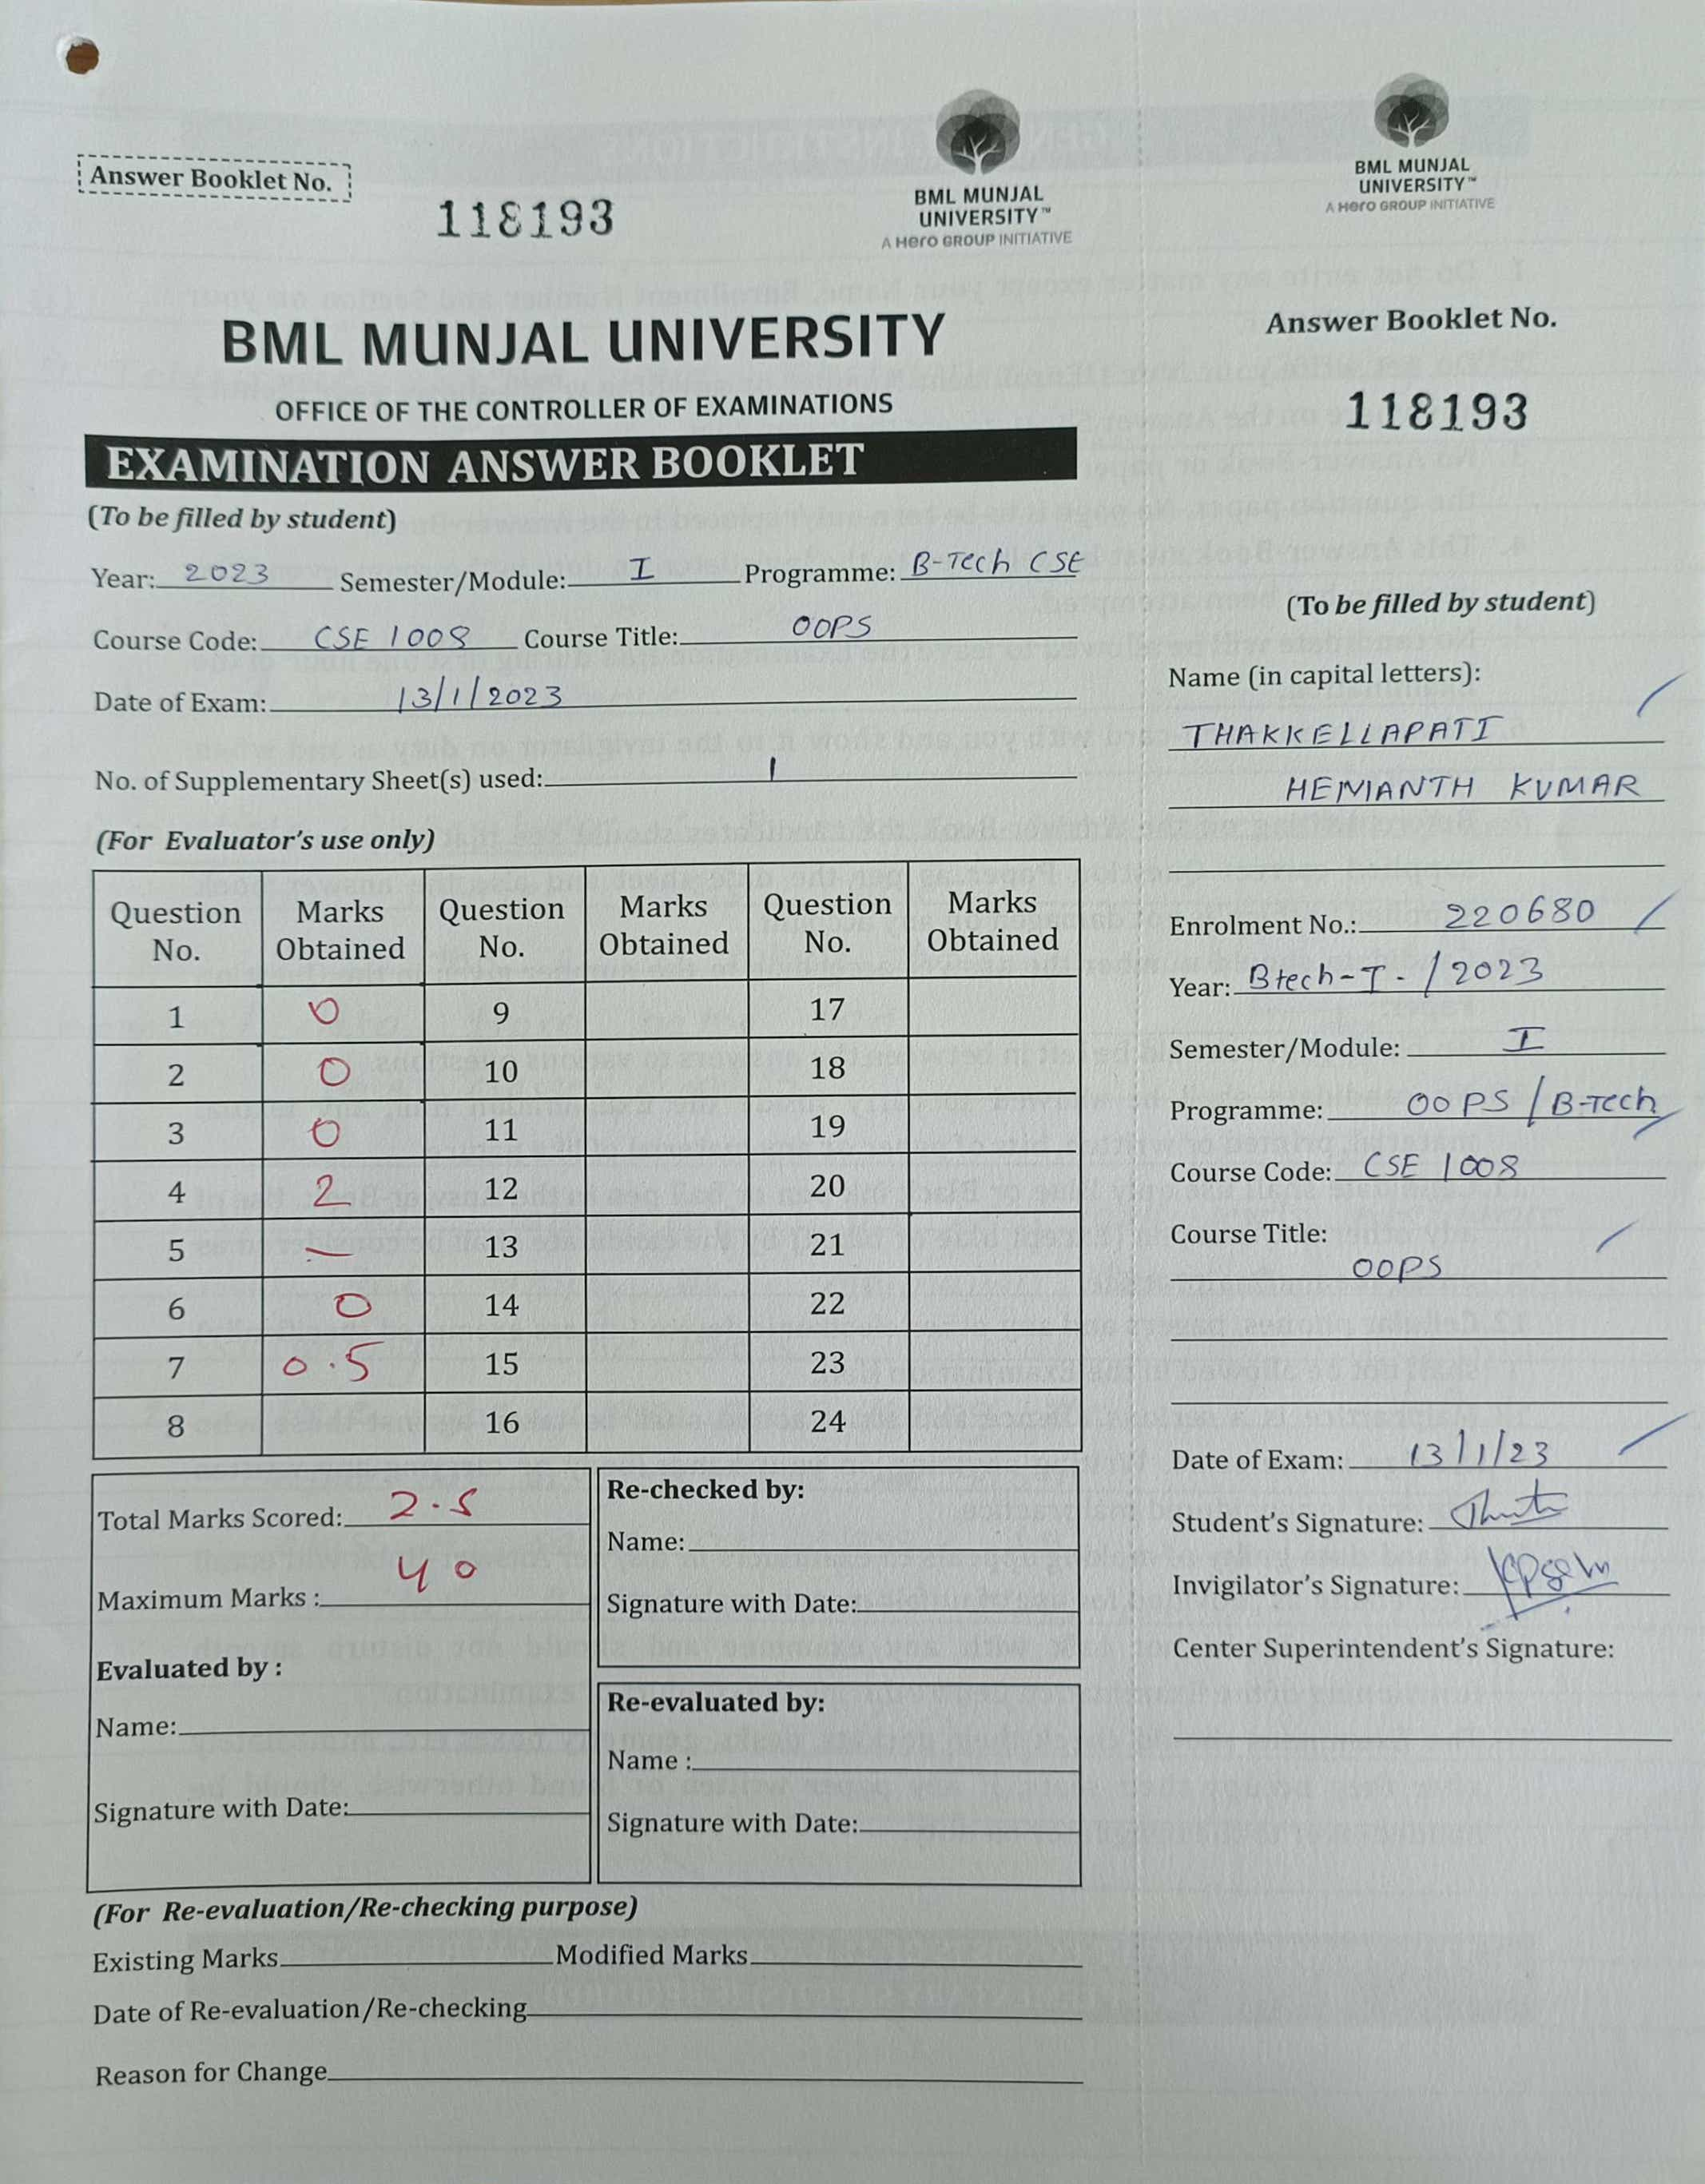 Answer Booklet No.
118193
BML MUNJAL
UNIVERSITY™
A Hero GROUP INITIATIVE
BML MUNJAL UNIVERSITY
OFFICE OF THE CONTROLLER OF EXAMINATIONS
EXAMINATION ANSWER BOOKLET
(To be filled by student)
Year: 2023 Semester/Module: I Programme: B-Tech CSE
Course Code: CSE 1008 Course Title: OOPS
Date of Exam: 13/1/2023
No. of Supplementary Sheet(s) used: 1
(For Evaluator's use only)
Question No. Marks Obtained Question No. Marks Obtained Question No. Marks Obtained
1 0 9 17
2 0 10 18
3 0 11 19
4 2 12 20
5 — 13 21
6 0 14 22
7 0.5 15 23
8 16 24
Total Marks Scored: 2.5
Maximum Marks : 40
Evaluated by :
Name:
Signature with Date:
Re-checked by:
Name:
Signature with Date:
Re-evaluated by:
Name :
Signature with Date:
(For Re-evaluation/Re-checking purpose)
Existing Marks Modified Marks
Date of Re-evaluation/Re-checking
Reason for Change
BML MUNJAL
UNIVERSITY™
A Hero GROUP INITIATIVE
Answer Booklet No.
118193
(To be filled by student)
Name (in capital letters):
THAKKELLAPATI
HEMANTH KUMAR
Enrolment No.: 220680
Year: Btech-I- / 2023
Semester/Module: I
Programme: OOPS / B-Tech
Course Code: CSE 1008
Course Title:
OOPS
Date of Exam: 13/1/23
Student's Signature:
Invigilator's Signature:
Center Superintendent's Signature: